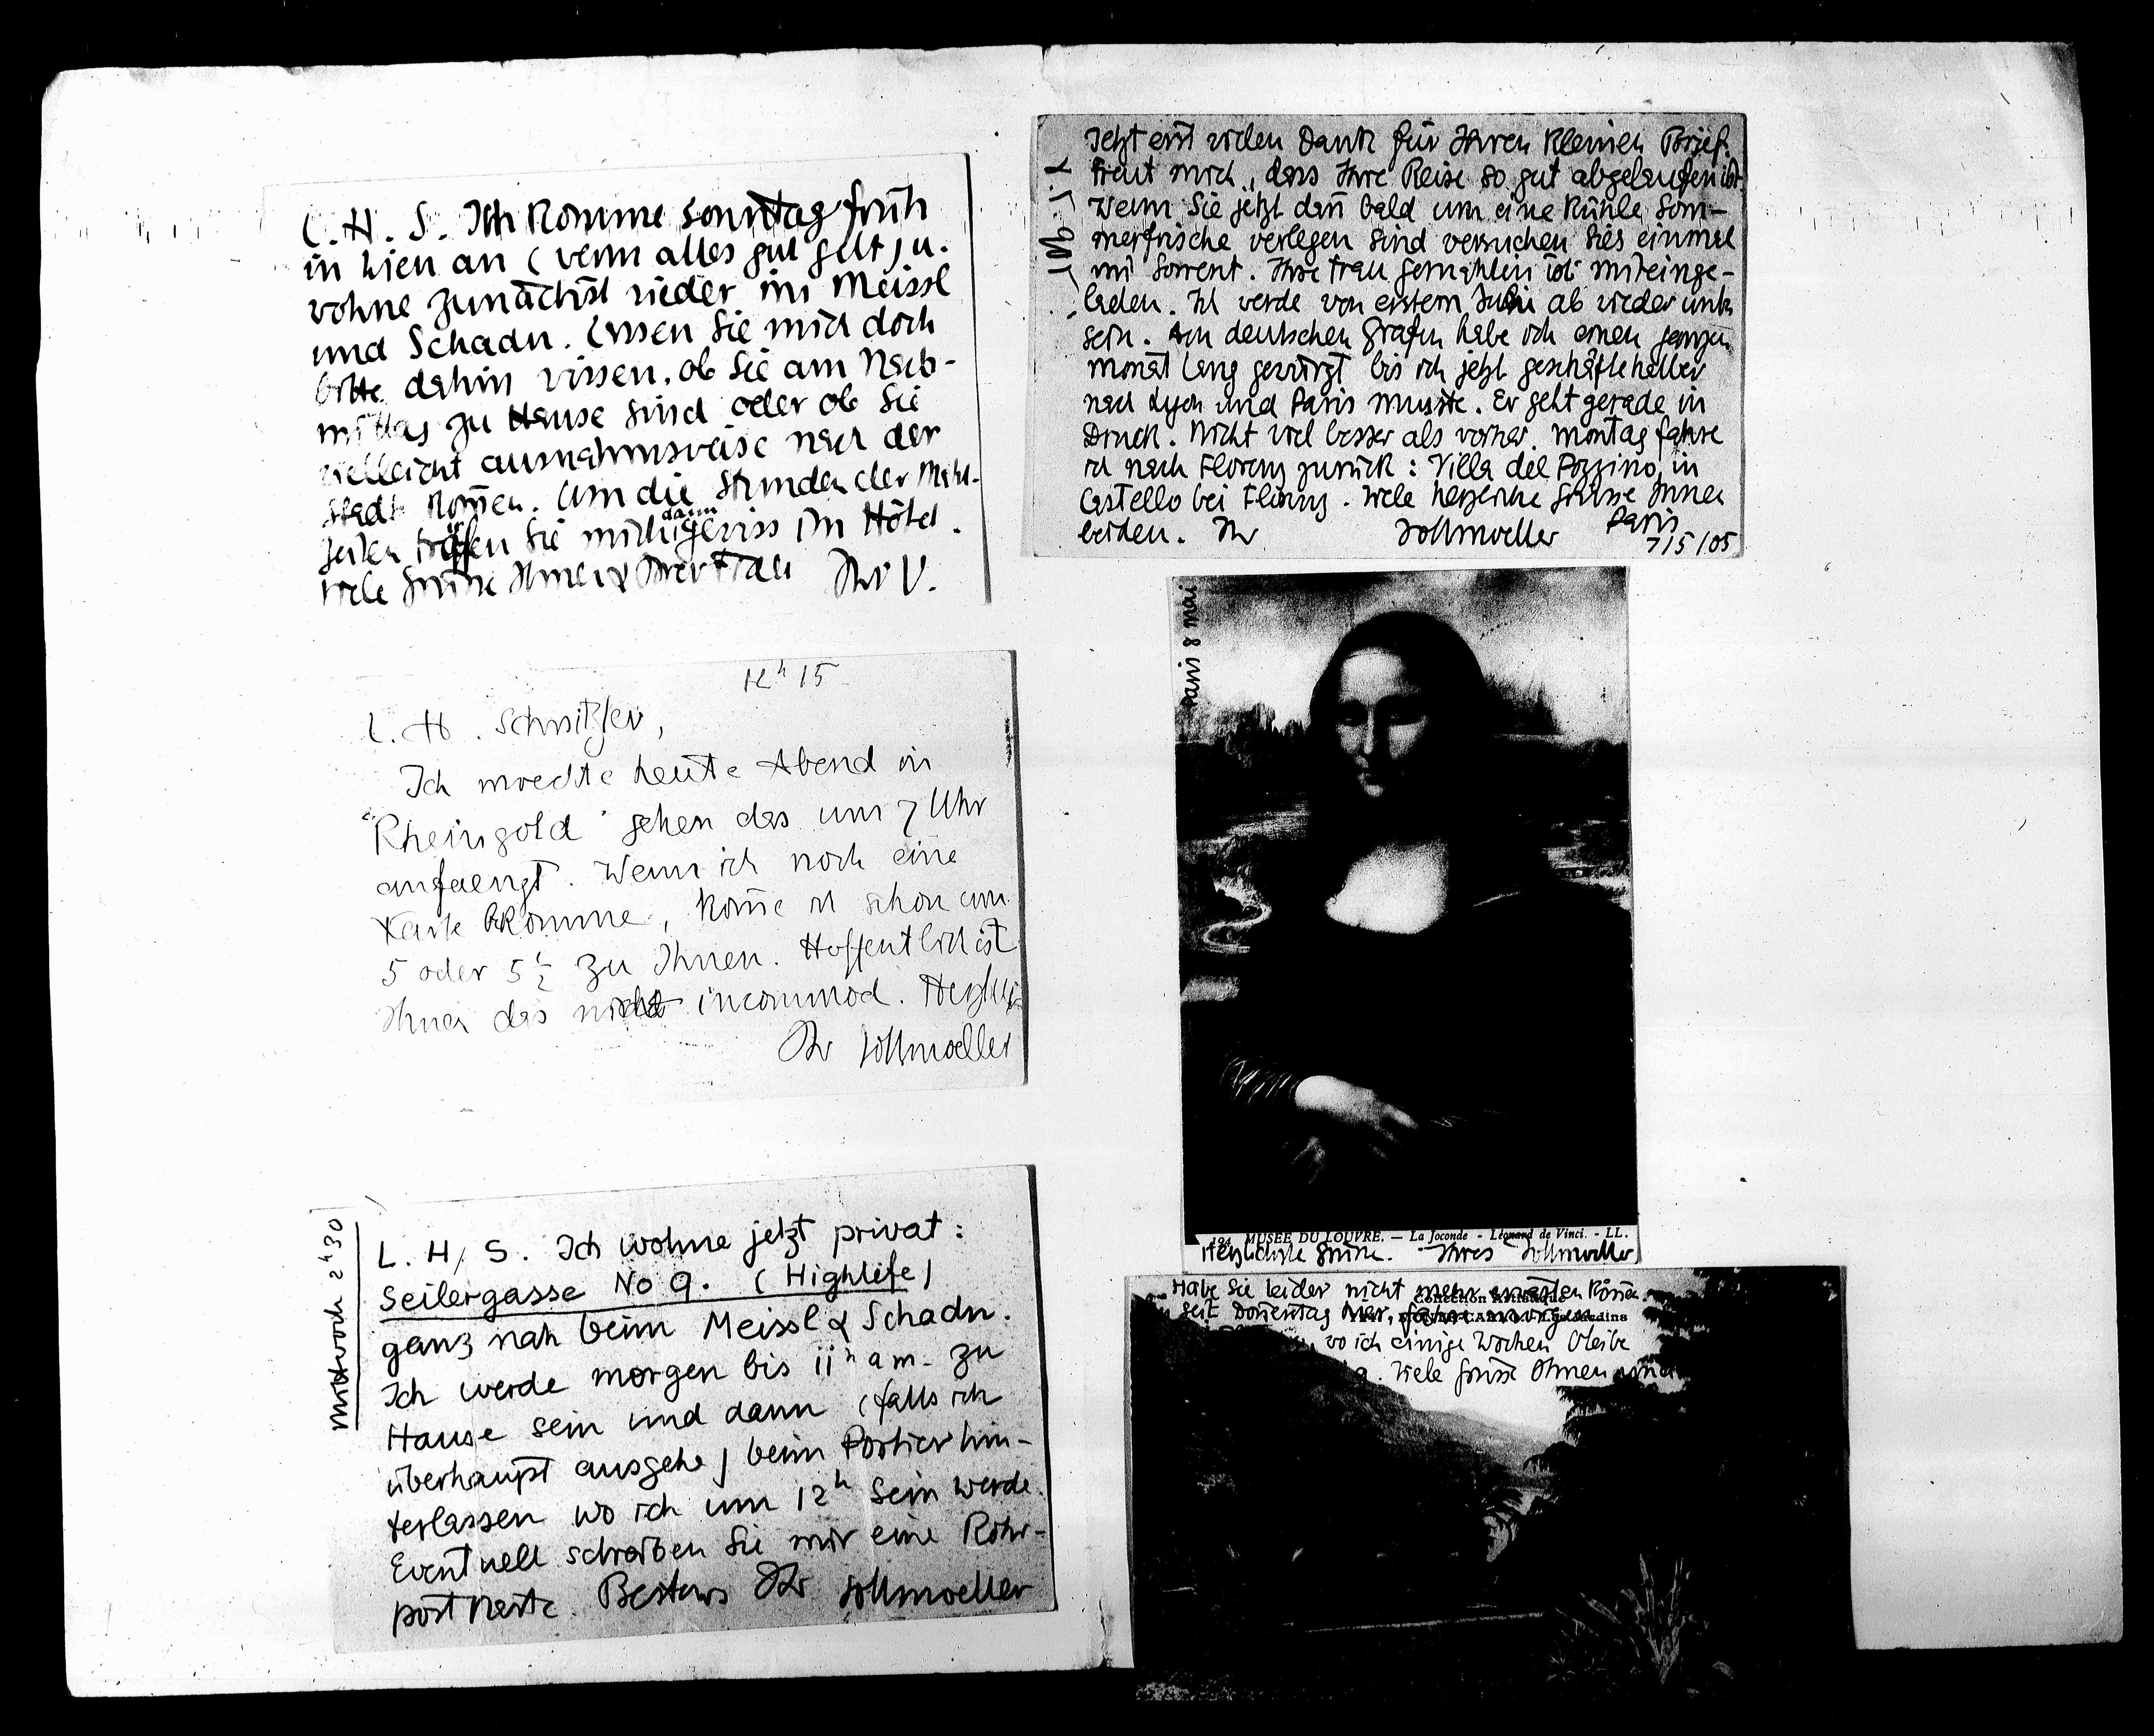 L. H. S. Ich komme sonntag früh
in Wien an (wenn alles gut geht) u.
wohne zunächst wieder im Meissl
und Schadn. Lassen Sie mich doch
bitte dahin wissen, ob Sie am Nach-
mittag zu Hause sind oder ob Sie
vielleicht ausnahmsweise nach der
Stadt kom̄en. Um die Stunden der Mahl-
zeiten träfen Sie mich dann gewiss im Hôtel.
Viele Grüsse Ihnen & Ihrer Frau Ihr V.
12h 15
L. H. Schnitzler,
Ich moechte heute Abend in
"Rheingold" gehen das um 7 Uhr
anfaengt. Wenn ich noch eine
Karte bekomme, kom̄e ich schon um
5 oder 5½ zu Ihnen. Hoffentlich ist
Ihnen das nicht incommod. Herzlich
Ihr Vollmoeller
Mittwoch 2h30
L. H. S. Ich wohne jetzt privat:
Seilergasse No 9. (Highlife)
ganz nah beim Meissl & Schadn.
Ich werde morgen bis 11h am. zu
Hause sein und dann (falls ich
überhaupt ausgehe) beim Portier hin-
terlassen wo ich um 12h sein werde.
Eventuell schreiben Sie mir eine Rohr-
postkarte. Bestens Ihr Vollmoeller
Jetzt erst vielen Dank für Ihren kleinen Brief.
Freut mich, dass Ihre Reise so gut abgelaufen ist.
Wenn Sie jetzt dan̄ bald um eine kühle Som-
merfrische verlegen sind versuchen Sies einmal
mit Sorrent. Ihre Frau Gemahlin ist miteinge-
laden. Ich werde von erstem Juni ab wieder unten
sein. Am deutschen Grafen habe ich einen ganzen
Monat lang gewürgt bis ich jetzt geschäftehalber
nach Lyon und Paris musste. Er geht gerade in
Druck. Nicht viel besser als vorher. Montag fahre
ich nach Florenz zurück: Villa del Pozzino, in
Castello bei Florenz. Viele herzliche Grüsse Ihnen
beiden. Ihr Vollmoeller Paris
7/5/05
Paris 8 mai
MUSÉE DU LOUVRE. — La Joconde - Léonard de Vinci. - LL.
Herzlichste Grüsse. Ihres Vollmoeller
Habe Sie leider nicht mehr erwarten kön̄en.
seit Don̄erstag hier, fahre morgen
wo ich einige Wochen bleibe
Viele Grüsse Ihnen